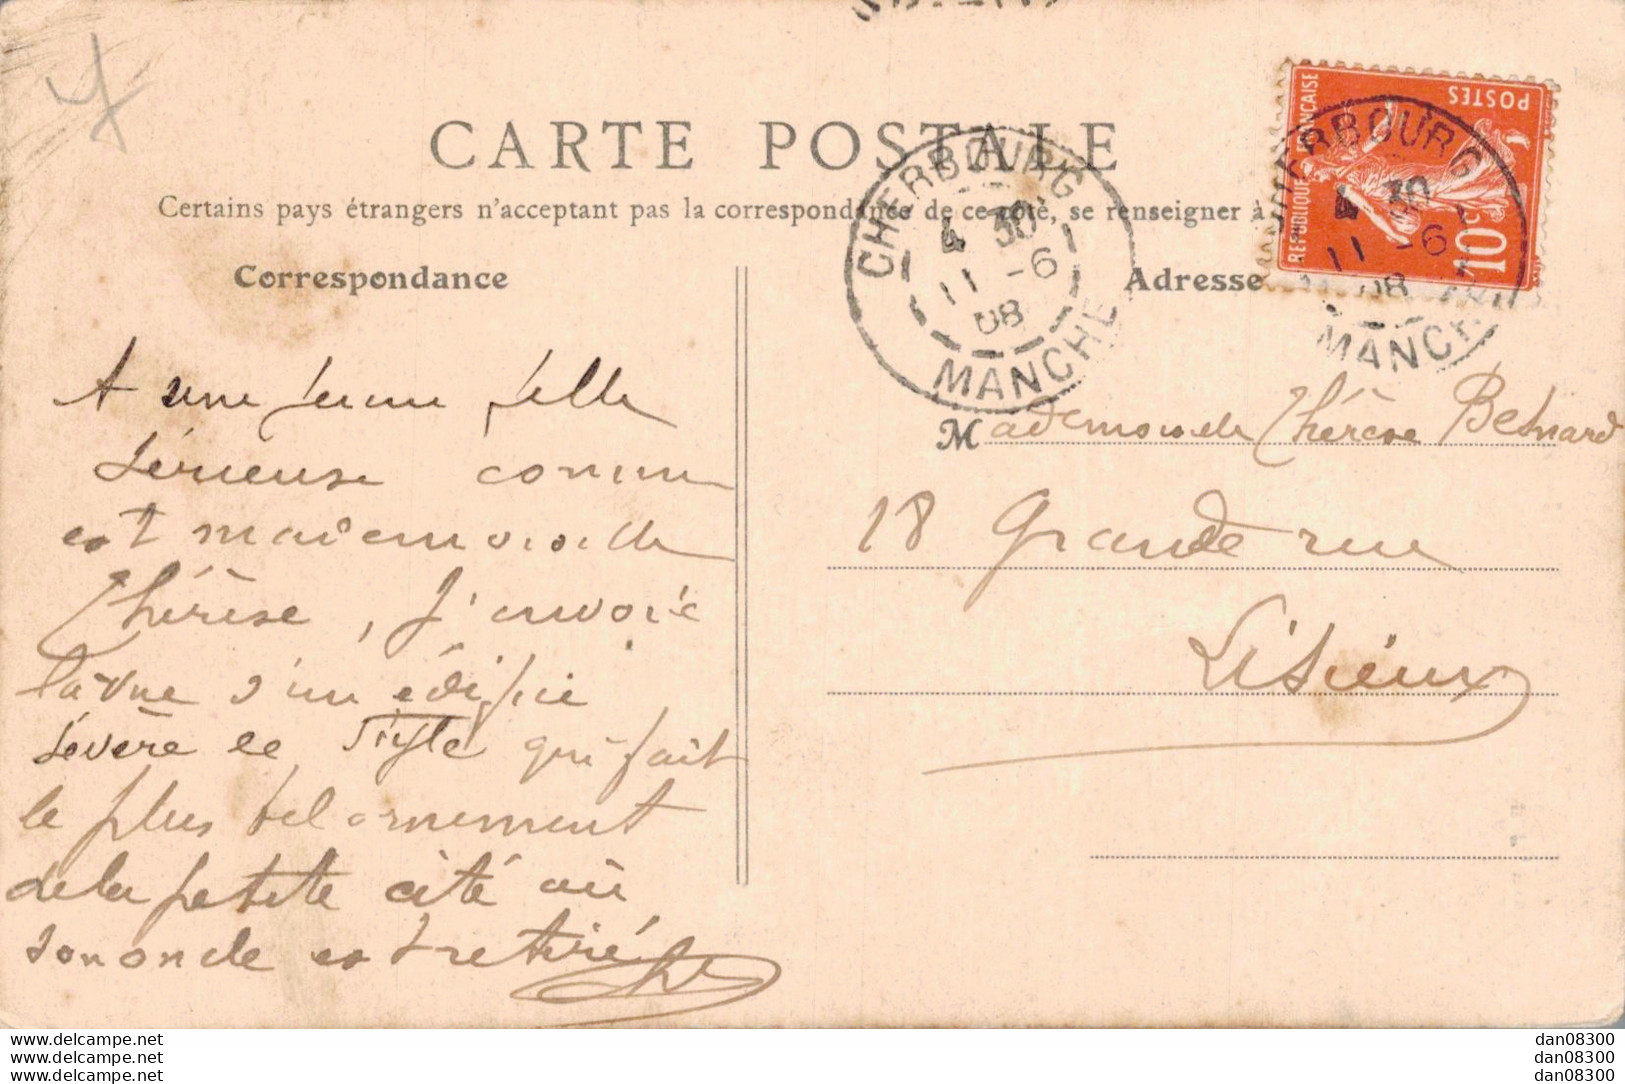 CARTE POSTALE
Certains pays étrangers n'acceptent pas la correspondance de ce côté, se renseigner à
Correspondance
Adresse
CHERBOURG
4 30
11 -6
08
MANCHE
REPUBLIQUE FRANÇAISE
POSTES
10c
CHERBOURG
4 30
11 -6
08
MANCHE
A une jeune fille
sérieuse comme
est mademoiselle
Thérèse, j'envoie
la vue d'un édifice
sévère de style qui fait
le plus bel ornement
de la petite cité où
son oncle est retiré
Mademoiselle Thérèse Besnard
18 Grande rue
Lisieux
www.delcampe.net
www.delcampe.net
www.delcampe.net
dan08300
dan08300
dan08300